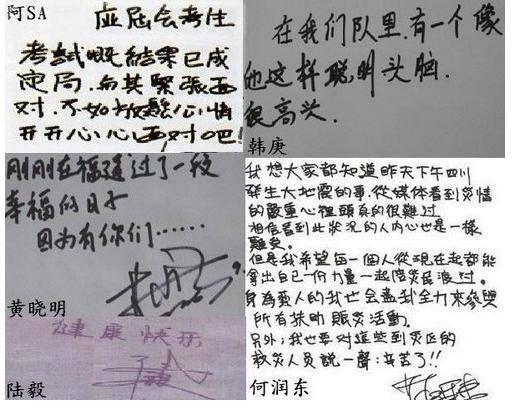 阿SA
应屆会考生
考試嘅結果已成
定局,与其緊張面
对,不如放鬆心情
开开心心面对吧!
在我们队里,有一个像
他这样聪明头脑,
很高兴.
韩庚
刚刚在福通过了一段
幸福的日子
因为有你们……
黄晓明
健康快乐
陆毅
我想大家都知道昨天下午四川
發生大地震的事,從媒体看到災情
的嚴重心裡頭真的很難过
相信看到此狀況的人内心也是一樣
難受。
但是我希望每一個人從現在起都能
拿出自己一份力量一起陪災民渡过。
身為藝人的我也会盡我全力來參與
所有扶助賑災活動。
另外,我也要对這些到災区的
救災人员説一聲:辛苦了!!
何润东